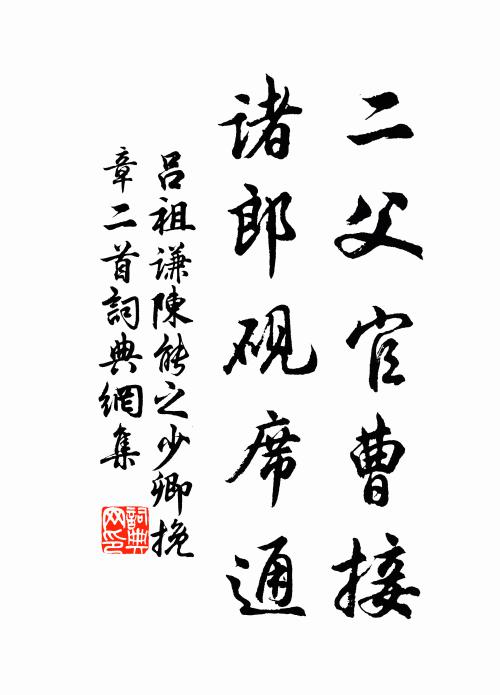 二父官曹接
诸郎砚席通
吕祖谦陳能之少卿挽
章二首詞典網集
詞典网印